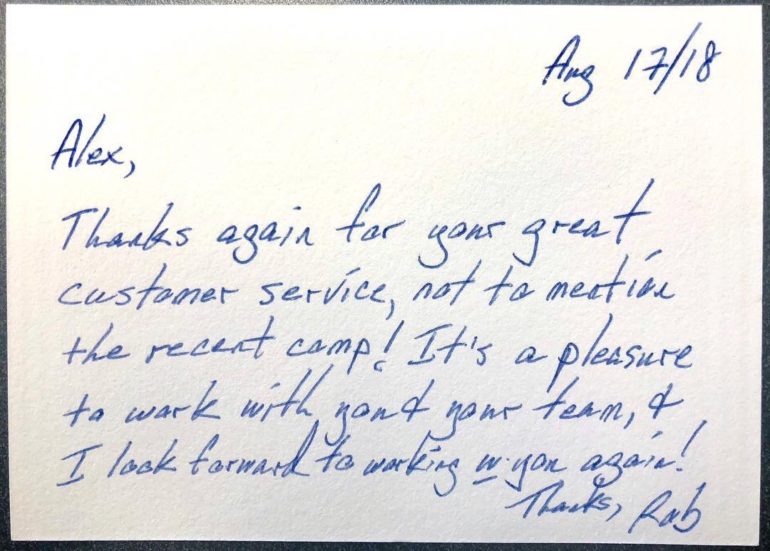 Aug 17/18
Alex,
Thanks again for your great
customer service, not to mention
the recent comp! It's a pleasure
to work with you & your team, &
I look forward to working w. you again!
Thanks, Rob